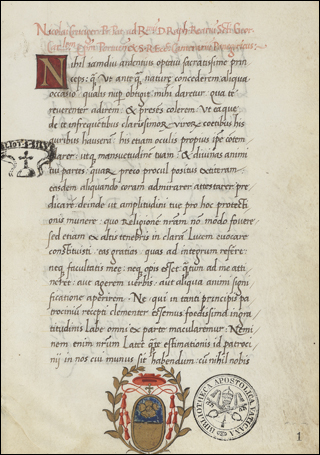 Nihil iamdiu ardentius optavi sacratissime prin
ceps: q̃ ut anteq̃ naturę concederem, aliqua
occasio qualis nup̃ obtigit mihi daretur qua te
reverenter adirem: & pręsēs colerem Ut eaque
de te in frequētibus clarissimor̃ viror̃ coetibus his
auribus hauseram: his etiam oculis propius spe cotem
plarer: utq̃ mansuetudinẽ tuam: & divinas animi
tui partes: quar̃ preco procul positus extiteram
easdem aliquando coram admirarer attestarer prę
dicarer deinde ut amplitudini tuę pro hoc protecti
onis munere quo Religionē nr̃am nõ modo fovere
sed etiam ex altis tenebris in clarā Lucem evocare
constituisti: tas gratias quas ad integrum refērre:
neq̃ facultatis meę: neq̃ opis esset q̃tum ad me atti
neret: aut agerem verbis: aut aliqua animi signi
ficatione aperirem: Ne qui in tanti principis pa
trociniũ recepti clementer essemus foedissima ingra
titudinis Labe omni ex parte macularemur. Nemi
nom enim nr̃um Latet q̃te estimationis id patroci
nij in nos cui munus sit habendum: cũ nihil nobis
BIBLIOTHECA APOSTOLICA VATICANA
1